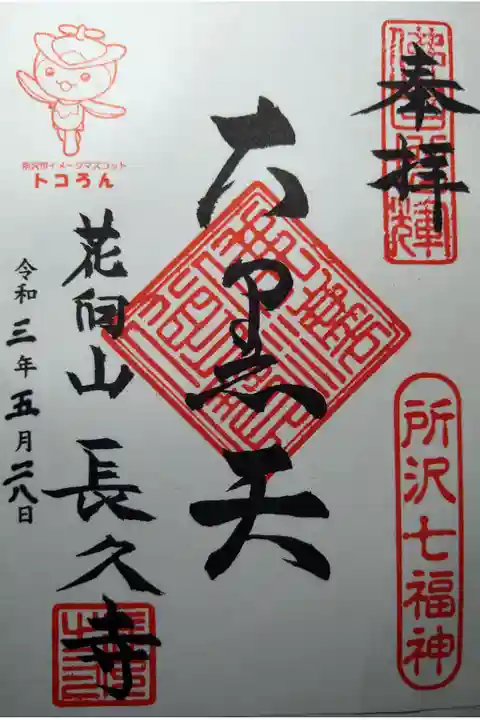 奉拝
所沢七福神
大黒天
所沢市イメージマスコット
トコろん
花向山 長久寺
令和三年五月二八日